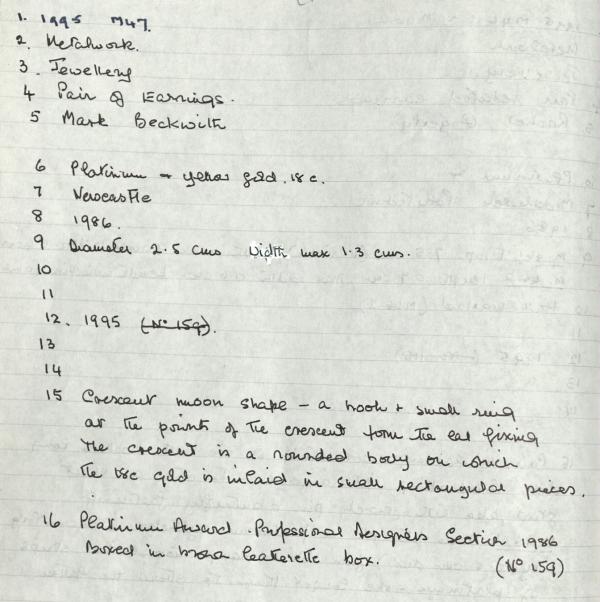 1. 1995 M47.
2. Metalwork.
3. Jewellery
4 Pair of Earrings.
5 Mark Beckwith
6 Platinum + yellow gold. 18 c.
7 Newcastle
8 1986.
9 Diameter 2.5 cms Width max 1.3 cms.
10
11
12. 1995 (No 159).
13
14
15 Crescent moon shape – a hook + small ring
at the points of the crescent form the ear fixing
The crescent is a rounded body on which
the 18c gold is inlaid in small rectangular pieces.
16 Platinum Award. Professional Designers Section 1986
Boxed in brown leatherette box. (No 159)